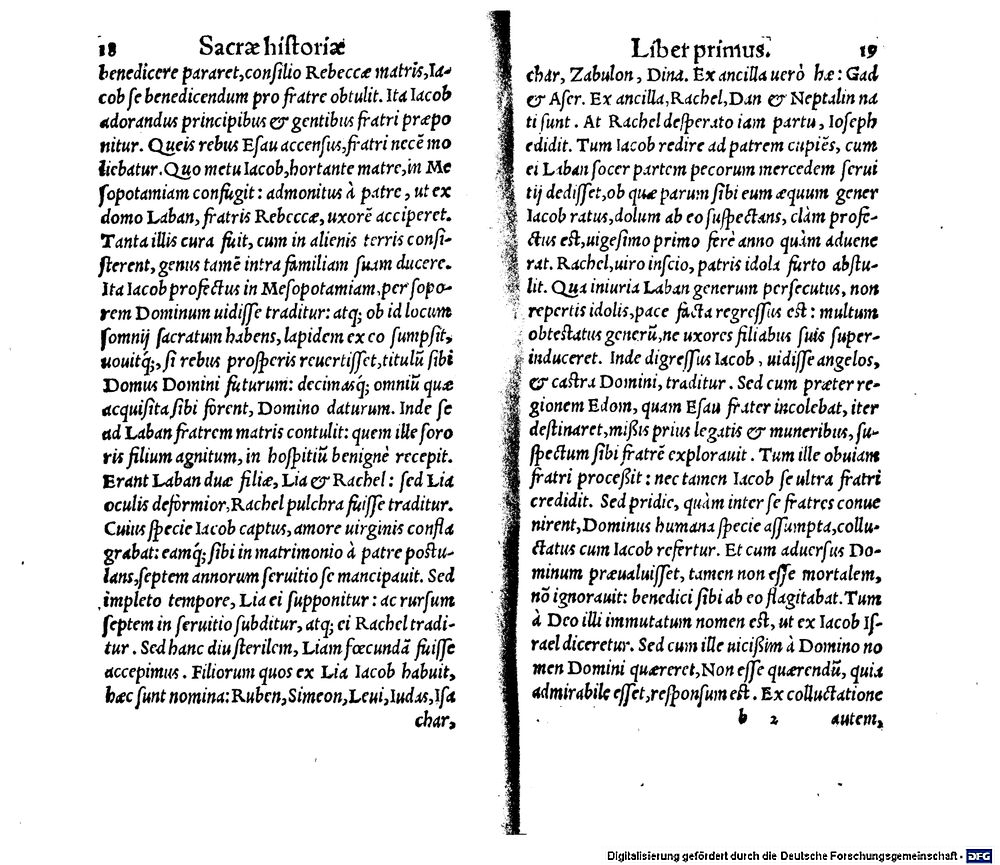 18 Sacræ historiæ
benedicere pararet, consilio Rebeccæ matris, Ia-
cob se benedicendum pro fratre obtulit. Ita Iacob
adorandus principibus & gentibus fratri præpo
nitur. Queis rebus Esau accensus, fratri necē mo
liebatur. Quo metu Iacob, hortante matre, in Me
sopotamiam confugit: admonitus à patre, ut ex
domo Laban, fratris Rebeccæ, uxorē acciperet.
Tanta illis cura fuit, cum in alienis terris consi-
sterent, genus tamē intra familiam suam ducere.
Ita Iacob profectus in Mesopotamiam, per sopo-
rem Dominum uidisse traditur: atq; ob id locum
somnij sacratum habens, lapidem ex eo sumpsit,
uouitq́;, si rebus prosperis reuertisset, titulū sibi
Domus Domini futurum: decimasq́; omniū quæ
acquisita sibi forent, Domino daturum. Inde se
ad Laban fratrem matris contulit: quem ille soro
ris filium agnitum, in hospitiū benignè recepit.
Erant Laban duæ filiæ, Lia & Rachel: sed Lia
oculis deformior, Rachel pulchra fuisse traditur.
Cuius specie Iacob captus, amore uirginis confla
grabat: eamq́; sibi in matrimonio à patre postu-
lans, septem annorum seruitio se mancipauit. Sed
impleto tempore, Lia ei supponitur: ac rursum
septem in seruitio subditur, atq; ei Rachel tradi-
tur. Sed hanc diu sterilem, Liam fœcundā fuisse
accepimus. Filiorum quos ex Lia Iacob habuit,
hæc sunt nomina: Ruben, Simeon, Leui, Iudas, Isa
char,
Liber primus. 19
char, Zabulon, Dina. Ex ancilla uerò hæ: Gad
& Aser. Ex ancilla, Rachel, Dan & Neptalin na
ti sunt. At Rachel desperato iam partu, Ioseph
edidit. Tum Iacob redire ad patrem cupiēs, cum
ei Laban socer partem pecorum mercedem serui
tij dedisset, ob quæ parum sibi eum æquum gener
Iacob ratus, dolum ab eo suspectans, clàm profe-
ctus est, uigesimo primo ferè anno quàm aduene
rat. Rachel, uiro inscio, patris idola furto abstu-
lit. Qua iniuria Laban generum persecutus, non
repertis idolis, pace facta regressus est: multum
obtestatus generū, ne uxores filiabus suis super-
induceret. Inde digressus Iacob, uidisse angelos,
& castra Domini, traditur. Sed cum præter re-
gionem Edom, quam Esau frater incolebat, iter
destinaret, mißis prius legatis & muneribus, su-
spectum sibi fratrē explorauit. Tum ille obuiam
fratri proceßit: nec tamen Iacob se ultra fratri
credidit. Sed pridie, quàm inter se fratres conue
nirent, Dominus humana specie assumpta, collu-
ctatus cum Iacob refertur. Et cum aduersus Do-
minum præualuisset, tamen non esse mortalem,
nō ignorauit: benedici sibi ab eo flagitabat. Tum
à Deo illi immutatum nomen est, ut ex Iacob Is-
rael diceretur. Sed cum ille uicißim à Domino no
men Domini quæreret, Non esse quærendū, quia
admirabile esset, responsum est. Ex colluctatione
b 2 autem,
Digitalisierung gefördert durch die Deutsche Forschungsgemeinschaft - DFG